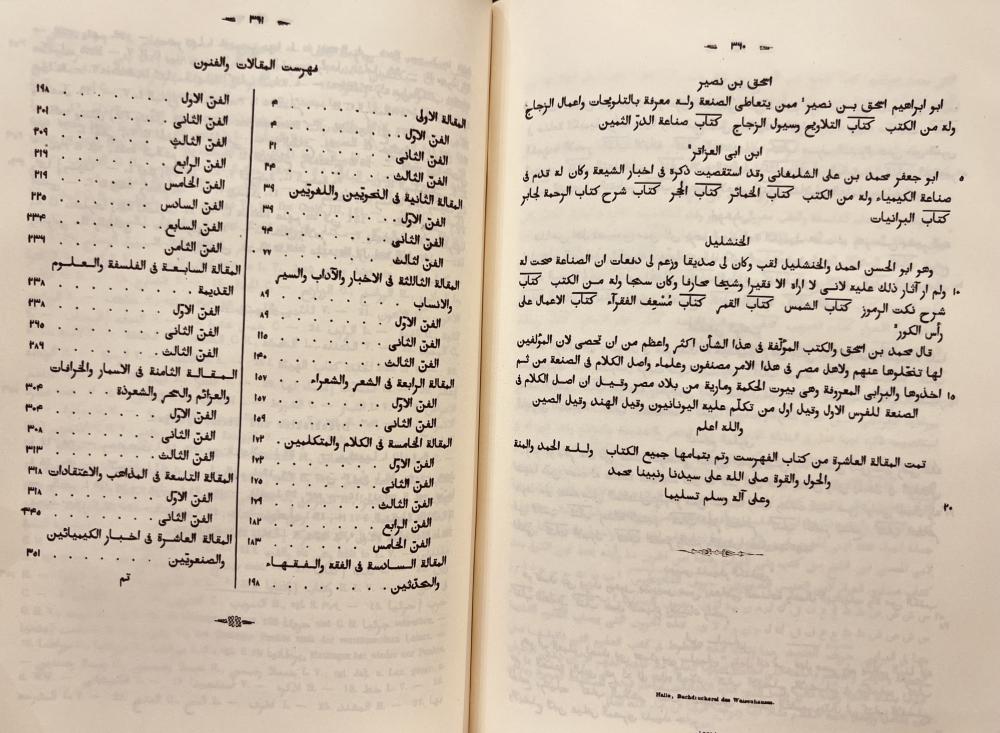 ٣٦٠
اسحق بن نصير
ابو ابراهيم اسحق بن نصير ممن يتعاطى الصنعة وله معرفة بالتلويحات واعمال الزجاج
وله من الكتب كتاب التلاويح وسيول الزجاج كتاب صناعة الدرّ الثمين
ابن ابى العزاقر
٥ ابو جعفر محمد بن على الشلمغانى وقد استقصيت ذكره فى اخبار الشيعة وكان له قدم فى
صناعة الكيمياء وله من الكتب كتاب الخمائر كتاب الحجر كتاب شرح كتاب الرحمة لجابر
كتاب البرانيات
الخنشليل
وهو ابو الحسن احمد والخنشليل لقب وكان لى صديقا وزعم لى دفعات ان الصناعة صحت له
١٠ ولم ار آثار ذلك عليه لانى لا اراه الا فقيرا وشيخا محارفا وكان سمجا وله من الكتب كتاب
شرح نكت الرموز كتاب الشمس كتاب القمر كتاب مُسْعِف الفقرآء كتاب الاعمال على
رأس الكور
قال محمد بن اسحق والكتب المؤلّفة فى هذا الشأن اكثر واعظم من ان تحصى لان المؤلفين
لها تنحّلوها عنهم ولاهل مصر فى هذا الامر مصنفون وعلماء واصل الكلام فى الصنعة من ثم
١٥ اخذوها والبرابى المعروفة وهى بيوت الحكمة ومارية من بلاد مصر وقيل ان اصل الكلام فى
الصنعة للفرس الاول وقيل اول من تكلّم عليه اليونانيون وقيل الهند وقيل الصين
والله اعلم
تمت المقالة العاشرة من كتاب الفهرست وتم بتمامها جميع الكتاب ولله الحمد والمنة
والحول والقوة صلى الله على سيدنا ونبينا محمد
٢٠ وعلى آله وسلم تسليما
Halle, Buchdruckerei des Waisenhauses.
٣٦١
فهرست المقالات والفنون
المقالة الاولى ٢
الفن الاوّل ٢
الفن الثانى ٢١
الفن الثالث ٢٤
المقالة الثانية فى النحويّين واللغويّين ٣٩
الفن الاوّل ٣٩
الفن الثانى ٦٤
الفن لثالث ٧٧
المقالة الثاللثة فى الاخبار والآداب والسير
والانساب ٨٩
الفن الاوّل ٨٩
الفن الثانى ١١٥
الفن الثالث ١٤٠
المقالة الرابعة فى الشعر والشعراء ١٥٧
الفن الاوّل ١٥٧
الفن الثانى ١٥٩
المقالة الخامسة فى الكلام والمتكلمين ١٧٢
الفن الاوّل ١٧٢
الفن الثانى ١٧٥
الفن الثالث ١٧٩
الفن الرابع ١٨٢
الفن الخامس ١٨٣
المقالة السادسة فى الفقه والفقهاء
والمحدّثين ١٩٨
الفن الاول ١٩٨
الفن الثانى ٢٠١
الفن الثالث ٢٠٩
الفن الرابع ٢١٦
الفن الخامس ٢١٩
الفن السادس ٢٢٥
الفن السابع ٢٣٤
الفن الثامن ٢٣٦
المقالة السابعة فى الفلسفة والعلوم
القديمة ٢٣٨
الفن الاوّل ٢٣٨
الفن الثانى ٢٦٥
الفن الثالث ٢٨٦
المقالة الثامنة فى الاسمار والخرافات
والعزائم والسحر والشعوذة ٣٠٤
الفن الاوّل ٣٠٤
الفن الثانى ٣٠٨
الفن الثالث ٣١٣
المقالة التاسعة فى المذاهب والاعتقادات ٣١٨
الفن الاوّل ٣١٨
الفن الثانى ٣٤٥
المقالة العاشرة فى اخبار الكيميائين
والصنعويّين ٣٥١
تم